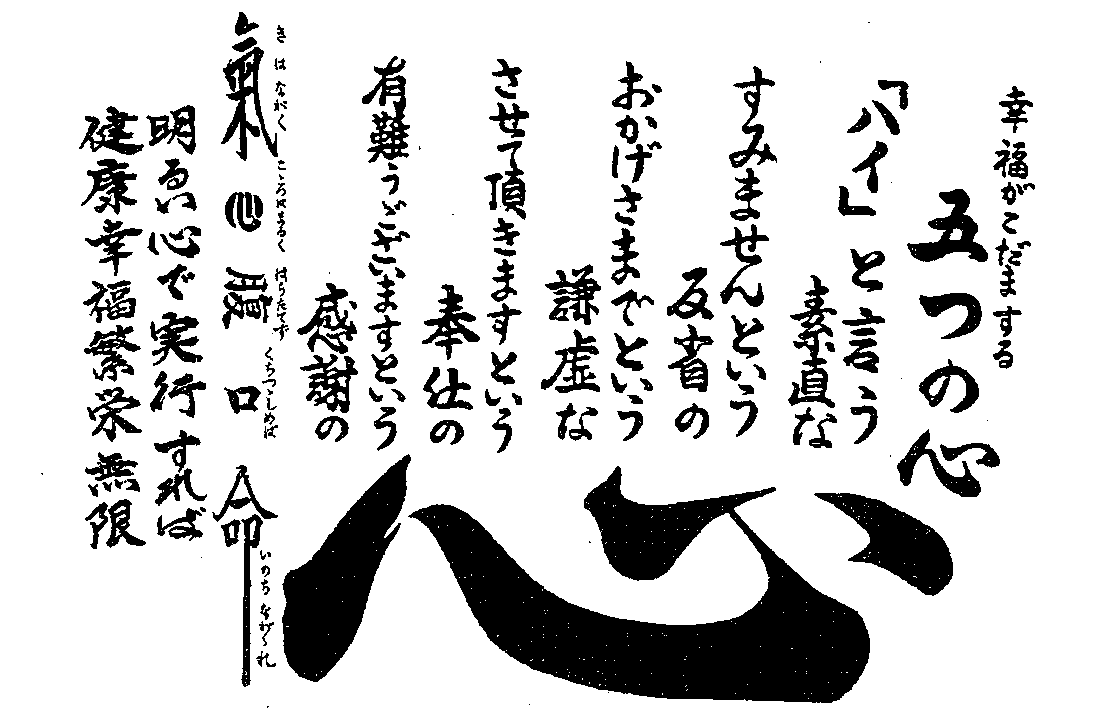 幸福がこだまする
五つの心
「ハイ」と言う
素直な
すみませんという
反省の
おかげさまでという
謙虚な
させて頂きますという
奉仕の
有難うございますという
感謝の
心
きはながく こころはまるく はらたてず くちつゝしめば いのちながゝれ
氣心腹口命
明るい心で実行すれば
健康幸福繁栄無限